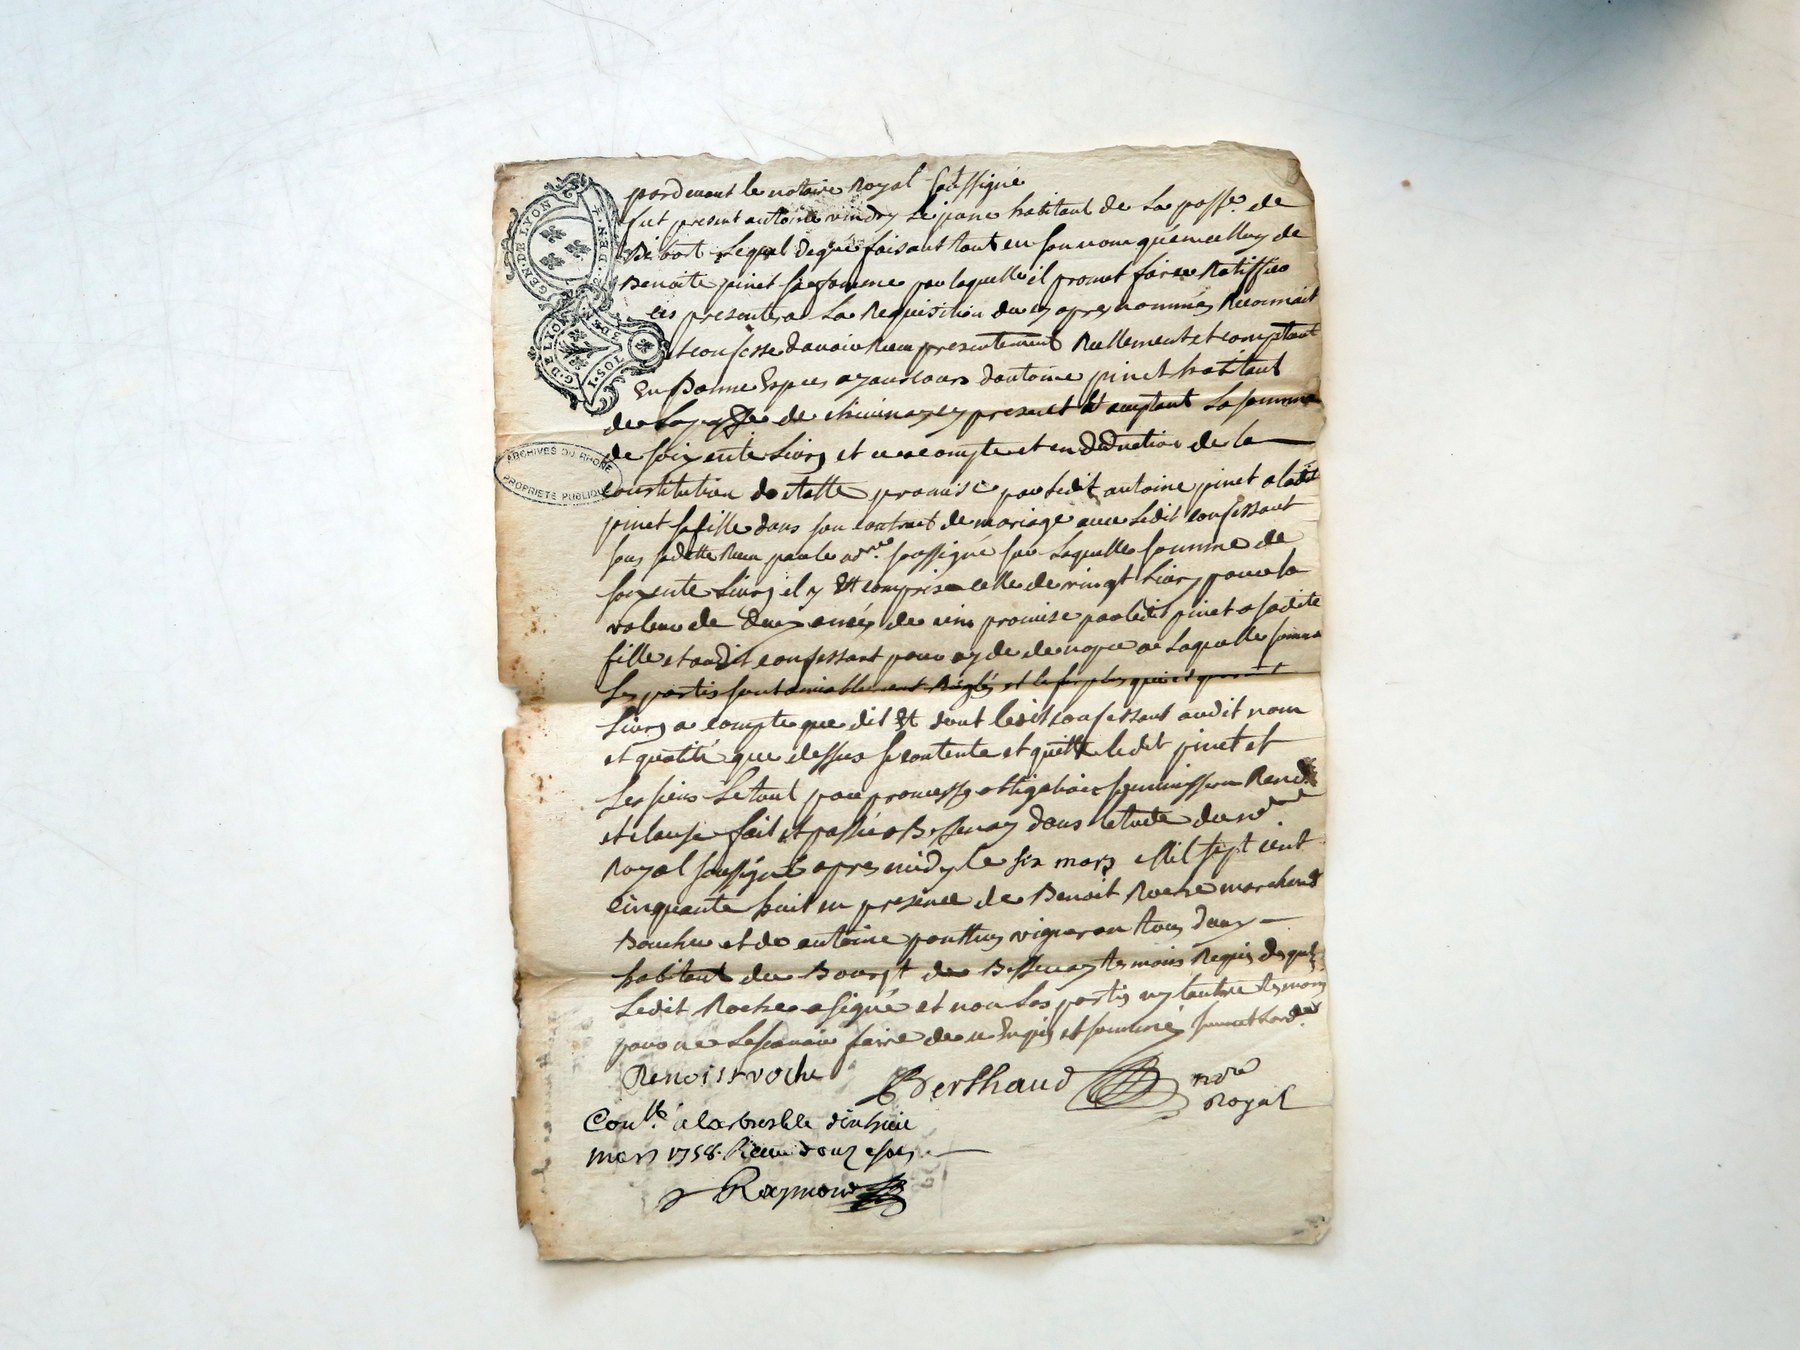 GEN. DE LYON
G. DE LYON
ARCHIVES DU RHONE
PROPRIETE PUBLIQUE
pardevant le notaire Royal soussigné
fut present antoine vindry le jeune habitant de La passe. de
Bibost Lequel de gré faisant tant en son nom qu'en celluy de
Benoite pinet sa femme par laquelle il promet faire Ratiffier
ces presentes a La Requisition du cy apres nommés Reconnait
et confesse d'avoir Receu presentement Reellement et comptant
En Bonne Especes ayant cours d'antoine pinet habitant
de La de chevinay cy present et aceptant La somme
de soixente Livres et ce a compte et en deduction de la
constitution dottalle promise par Ledit antoine pinet a ladite
pinet sa fille dans son contrat de mariage avec Ledit confessant
sous sa datte Receu par le nore. soussigné sur Laquelle somme de
soixente Livres il y Est comprise celle de vingt Livres pour la
valeur de deux anées de vin promise par ledit pinet a sadite
fille et audit confessant pour ayde de nopce a Laquelle somme
Les partis sont amiablement Reglés et le surplus qui est quarante
Livres a compte que dit Est dont ledit confessant audit nom
et qualité que dessus se contente et quitte ledit pinet et
Les siens Le tout par promesse obligation soumission Rend.
et clause fait et passé a Bessenay dans l'etude du nore.
Royal soussigné apres midy le six mars Mil sept cent
cinquante huit en presence de Benoit Roche marchand
Boucher et de antoine ponthus vigneron tous deux
habitant du Bourgt de Bessenay temoins Requis desquels
Ledit Roche a signé et non Les partis ny l'autre temoin
pour ne Le scavoir faire de ce Enquis et sommé
Benoist roche Berthaud nore Royal
Conllé a larbresle dixhuit
mars 1758. Receu douze sols
Raymond